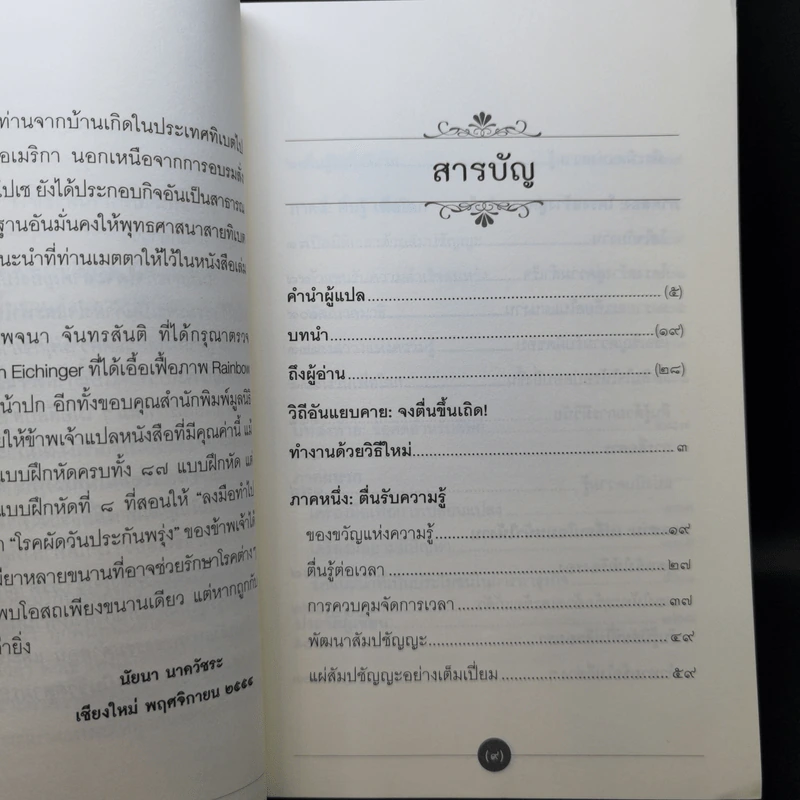 ท่านจากบ้านเกิดในประเทศทิเบตไป
อเมริกา นอกเหนือจากการอบรมสั่ง
ไปเช ยังได้ประกอบกิจอันเป็นสาธารณ
ฐานอันมั่นคงให้พุทธศาสนาสายทิเบต
นะนำที่ท่านเมตตาให้ไว้ในหนังสือเล่ม
พจนา จันทรสันติ ที่ได้กรุณาตรวจ
n Eichinger ที่ได้เอื้อเฟื้อภาพ Rainbow
น้าปก อีกทั้งขอบคุณสำนักพิมพ์มูลนิธิ
ยให้ข้าพเจ้าแปลหนังสือที่มีคุณค่านี้ แม้
แบบฝึกหัดครบทั้ง ๘๗ แบบฝึกหัด แต่
แบบฝึกหัดที่ ๘ ที่สอนให้ “ลงมือทำไป
า “โรคผัดวันประกันพรุ่ง” ของข้าพเจ้าได้
มียาหลายขนานที่อาจช่วยรักษาโรคต่างๆ
พบโอสถเพียงขนานเดียว แต่หากถูกกับ
ค่ายิ่ง
นัยนา นาควัชระ
เชียงใหม่ พฤศจิกายน ๒๕๕๕
สารบัญ
คำนำผู้แปล (๕)
บทนำ (๑๙)
ถึงผู้อ่าน (๒๘)
วิถีอันแยบคาย: จงตื่นขึ้นเถิด!
ทำงานด้วยวิธีใหม่ ๓
ภาคหนึ่ง: ตื่นรับความรู้
ของขวัญแห่งความรู้ ๑๙
ตื่นรู้ต่อเวลา ๒๗
การควบคุมจัดการเวลา ๓๗
พัฒนาสัมปชัญญะ ๔๙
แผ่สัมปชัญญะอย่างเต็มเปี่ยม ๕๙
(๙)